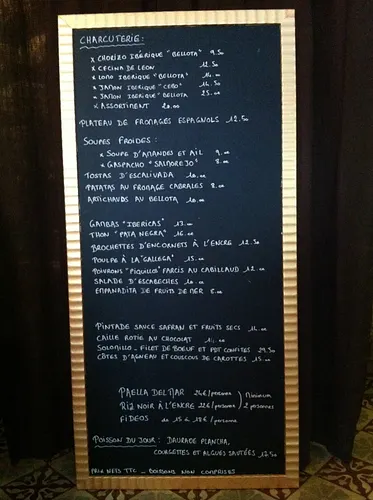 CHARCUTERIE :
x CHORIZO IBÉRIQUE "BELLOTA" 9.50
x CECINA DE LEON 12.50
x LOMO IBÉRIQUE "BELLOTA" 14.00
x JAMON IBERIQUE "CEBO" 14.50
x JAMON IBERIQUE "BELLOTA 25.00
x ASSORTIMENT 20.00
PLATEAU DE FROMAGES ESPAGNOLS 12.50
SOUPES FROIDES :
x SOUPE D'AMANDES ET AIL 9.00
x GASPACHO "SALMOREJO" 8.00
TOSTAS D'ESCALIVADA 10.00
PATATAS AU FROMAGE CABRALES 8.00
ARTICHAUDS AU BELLOTA 10.00
GAMBAS "IBERICAS" 17.00
THON "PATA NEGRA" 16.00
BROCHETTES D'ENCORNETS À L'ENCRE 12.50
POULPE À LA "GALLEGA" 15.00
POIVRONS "PIQUILLOS" FARCIS AU CABILLAUD 12.00
SALADE D'ESCABECHES 10.00
EMPANADITA DE FRUITS DE MER 8.00
PINTADE SAUCE SAFRAN ET FRUITS SECS 14.00
CAILLE ROTIE AU CHOCOLAT 14.00
SOLOMILLO - FILET DE BOEUF ET PDT CONFITES 29.50
CÔTES D'AGNEAU ET COUSCOUS DE CAROTTES 15.00
PAELLA DEL MAR 24€/personne ) Minimum
RIZ NOIR À L'ENCRE 22€/personne ) 2 personnes
FIDEOS de 15 à 18€/personne
POISSON DU JOUR : DAURADE PLANCHA,
COURGETTES ET ALGUES SAUTÉES 17.50
PRIX NETS TTC - BOISSONS NON COMPRISES